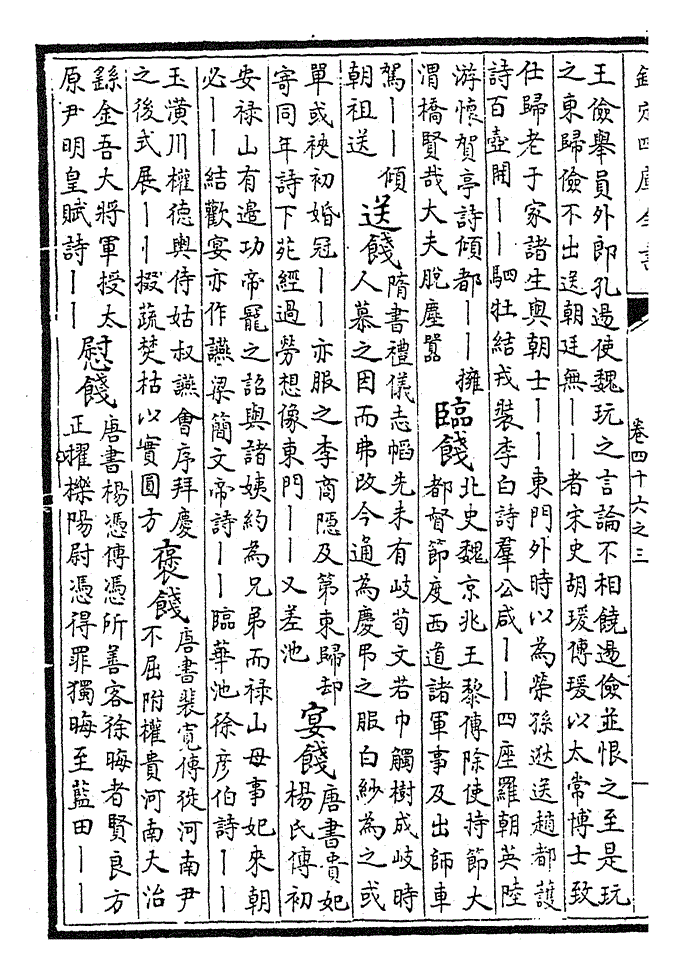 欽定四庫全書
卷四十六之三
王儉舉員外郎孔逷使魏玩之言論不相饒逷儉並恨之至是玩
之東歸儉不出送朝廷無丨丨者宋史胡瑗傳瑗以太常博士致
仕歸老于家諸生與朝士丨丨東門外時以為榮孫逖送趙都護
詩百壺開丨丨駟牡結戎裝李白詩羣公咸丨丨四座羅朝英陸
游懷賀亭詩傾都丨丨擁
渭橋賢哉大夫脫塵嚻
臨餞
北史魏京兆王黎傳除使持節大
都督節度西道諸軍事及出師車
駕丨丨傾
朝祖送
送餞
隋書禮儀志帽先未有岐荀文若巾觸樹成岐時
人慕之因而弗改今通為慶弔之服白紗為之或
單或裌初婚冠丨丨亦服之李商隱及第東歸却
寄同年詩下苑經過勞想像東門丨丨又差池
宴餞
唐書貴妃
楊氏傳初
安禄山有邊功帝寵之詔與諸姨約為兄弟而禄山母事妃來朝
必丨丨結歡宴亦作讌梁簡文帝詩丨丨臨華池徐彦伯詩丨丨
玉潢川權德輿侍姑叔讌會序拜慶
之後式展丨丨掇蔬焚枯以實圓方
褒餞
唐書裴寬傳徙河南尹
不屈附權貴河南大治
繇金吾大將軍授太
原尹明皇賦詩丨丨
慰餞
唐書楊憑傳憑所善客徐晦者賢良方
正擢櫟陽尉憑得罪獨晦至藍田丨丨